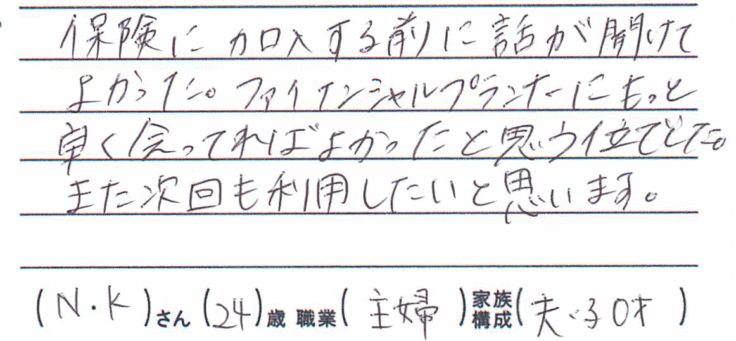 保険に加入する前に話が聞けて
よかった。ファイナンシャルプランナーにもっと
早く会ってればよかったと思う位でした。
また次回も利用したいと思います。
(N・K)さん(24)歳 職業(主婦)家族構成(夫・子0才)